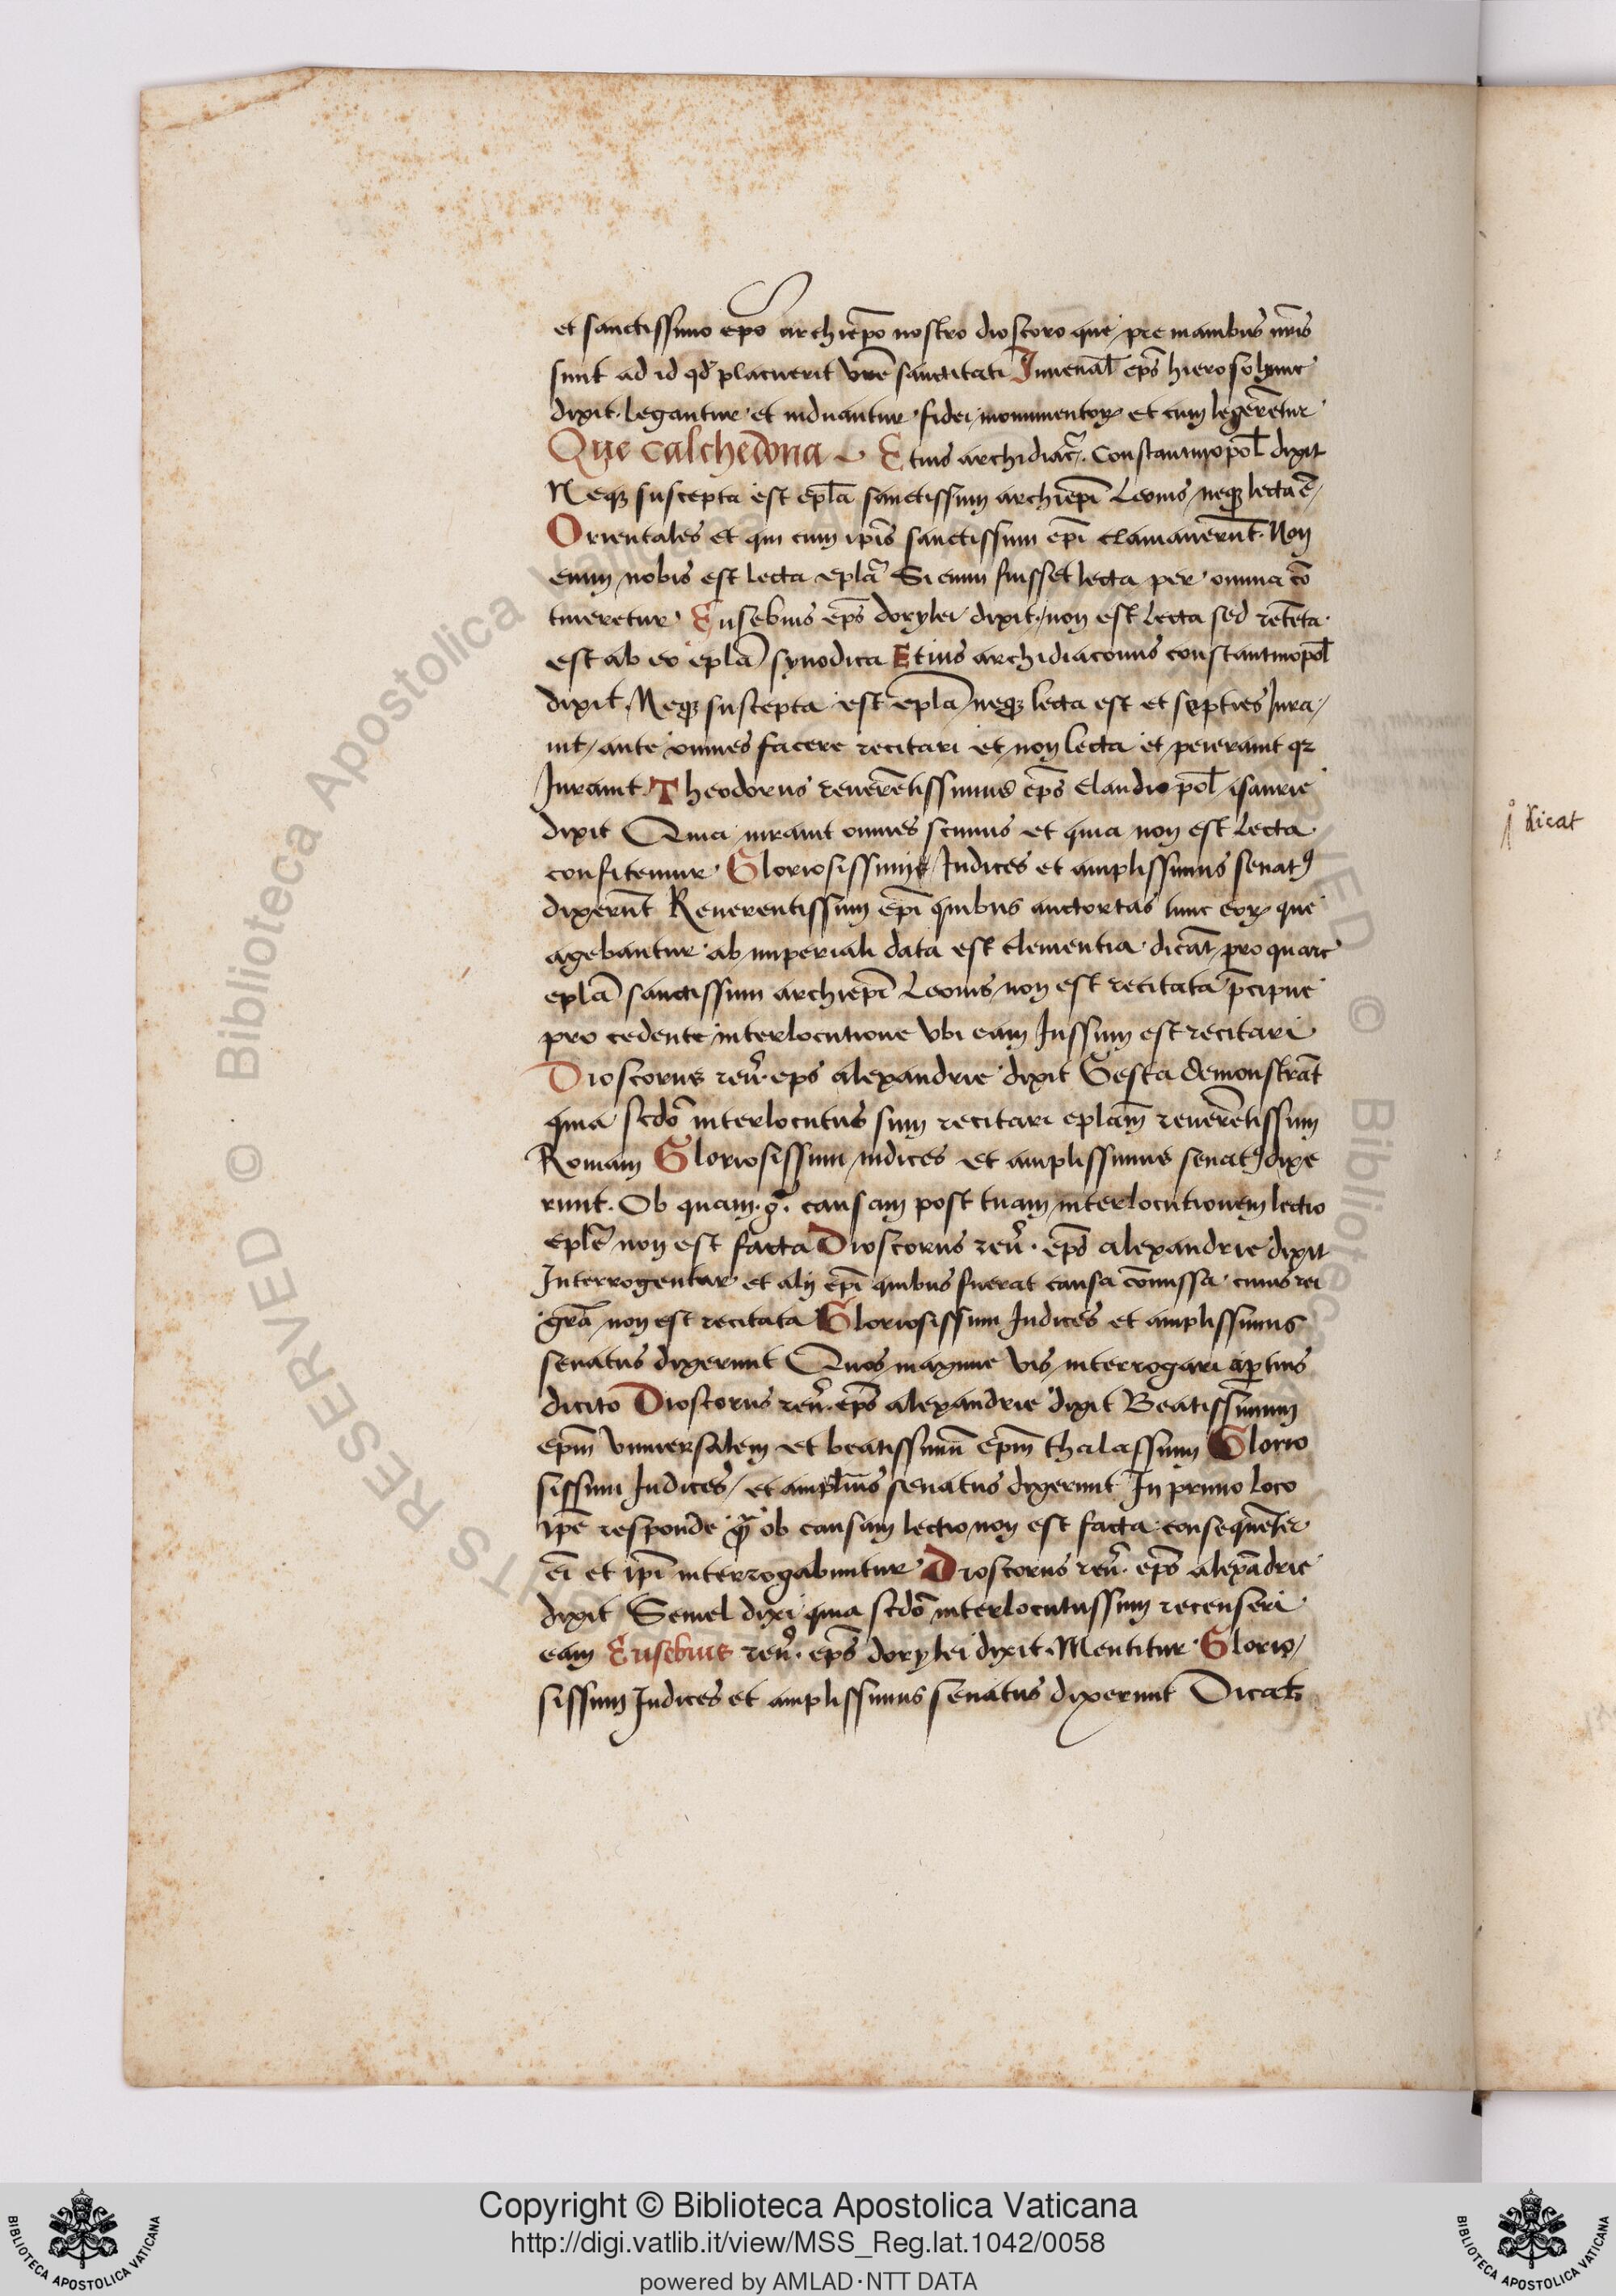 et sanctissimo epo archiepo nostro dioscoro que pre manibus nris
sunt ad id qd placuerit vre sanctitati Juuenal eps hierosolyme
dixit. legantur et induantur fidei monumentor et cum legeretur
Que calchedona Etius archidiac. Constantinopol dixit
Neq suscepta est epla sanctissimi archiepi Leonis neq lecta e
Orientales et qui cum ipis sanctissimi epi clamauerunt. Non
enim nobis est lecta epla Si enim fuisset lecta per omnia co
tineretur Eusebius eps dorylei dixit non est lecta sed retenta
est ab eo epla synodica Etius archidiaconus constantinopol
dixit Neq suscepta est epla neq lecta est et septies Jura
uit ante omnes facere recitari et non lecta et peierauit q
Jurauit Theodorus reuerentissimus eps Claudiopol isaurie
dixit Quia iurauit omnes scimus et quia non est lecta
confitemur Gloriosissimi Judices et amplissimus senat
dixerunt Reuerentissimi epi quibus auctoritas tunc eor que
agebantur ab imperiali data est clementia dicat pro quare
epla sanctissimi archiepi Leonis non est recitata pcipue
procedente interlocutione vbi eam Jussum est recitari
Dioscorus reu. eps alexandrie dixit Gesta demonstrat
quia scdo interlocutus sum recitari eplam reuerentissimi
Romani Gloriosissimi iudices et amplissimus senat dixe
runt. Ob quam g causam post tuam interlocutionem lectio
eple non est facta Dioscorus reu. eps alexandrie dixit
Interrogentur et alij epi quibus fuerat causa comissa cuius rei
gra non est recitata Gloriosissimi Judices et amplissimus
senatus dixerunt Quos maxime vis interrogari aptius
dicito Dioscorus reu. eps alexandrie dixit Beatissimum
epm vniuersalem et beatissimu epm thalassium Glorio
sissimi Judices et amplimus senatus dixerunt In primo loco
ipe responde q ob causam lectio non est facta consequeter
ei et ipi interrogabuntur Dioscorus reu. eps alexadrie
dixit Semel dixi quia scdo interlocutus sum recenseri
eam Eusebius reu. eps dorylei dixit. Mentitur Glorio
sissimi Judices et amplissimus senatus dixerunt Dicat
dicat
Copyright © Biblioteca Apostolica Vaticana
http://digi.vatlib.it/view/MSS_Reg.lat.1042/0058
powered by AMLAD·NTT DATA
BIBLIOTECA APOSTOLICA VATICANA
BIBLIOTECA APOSTOLICA VATICANA